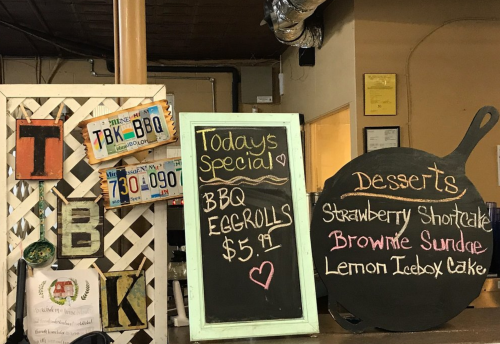 T
B
K
TBK BBQ
730 0907
Today's
Special
BBQ
EGGROLLS
$5.99
Desserts
Strawberry Shortcake
Brownie Sundae
Lemon Icebox Cake